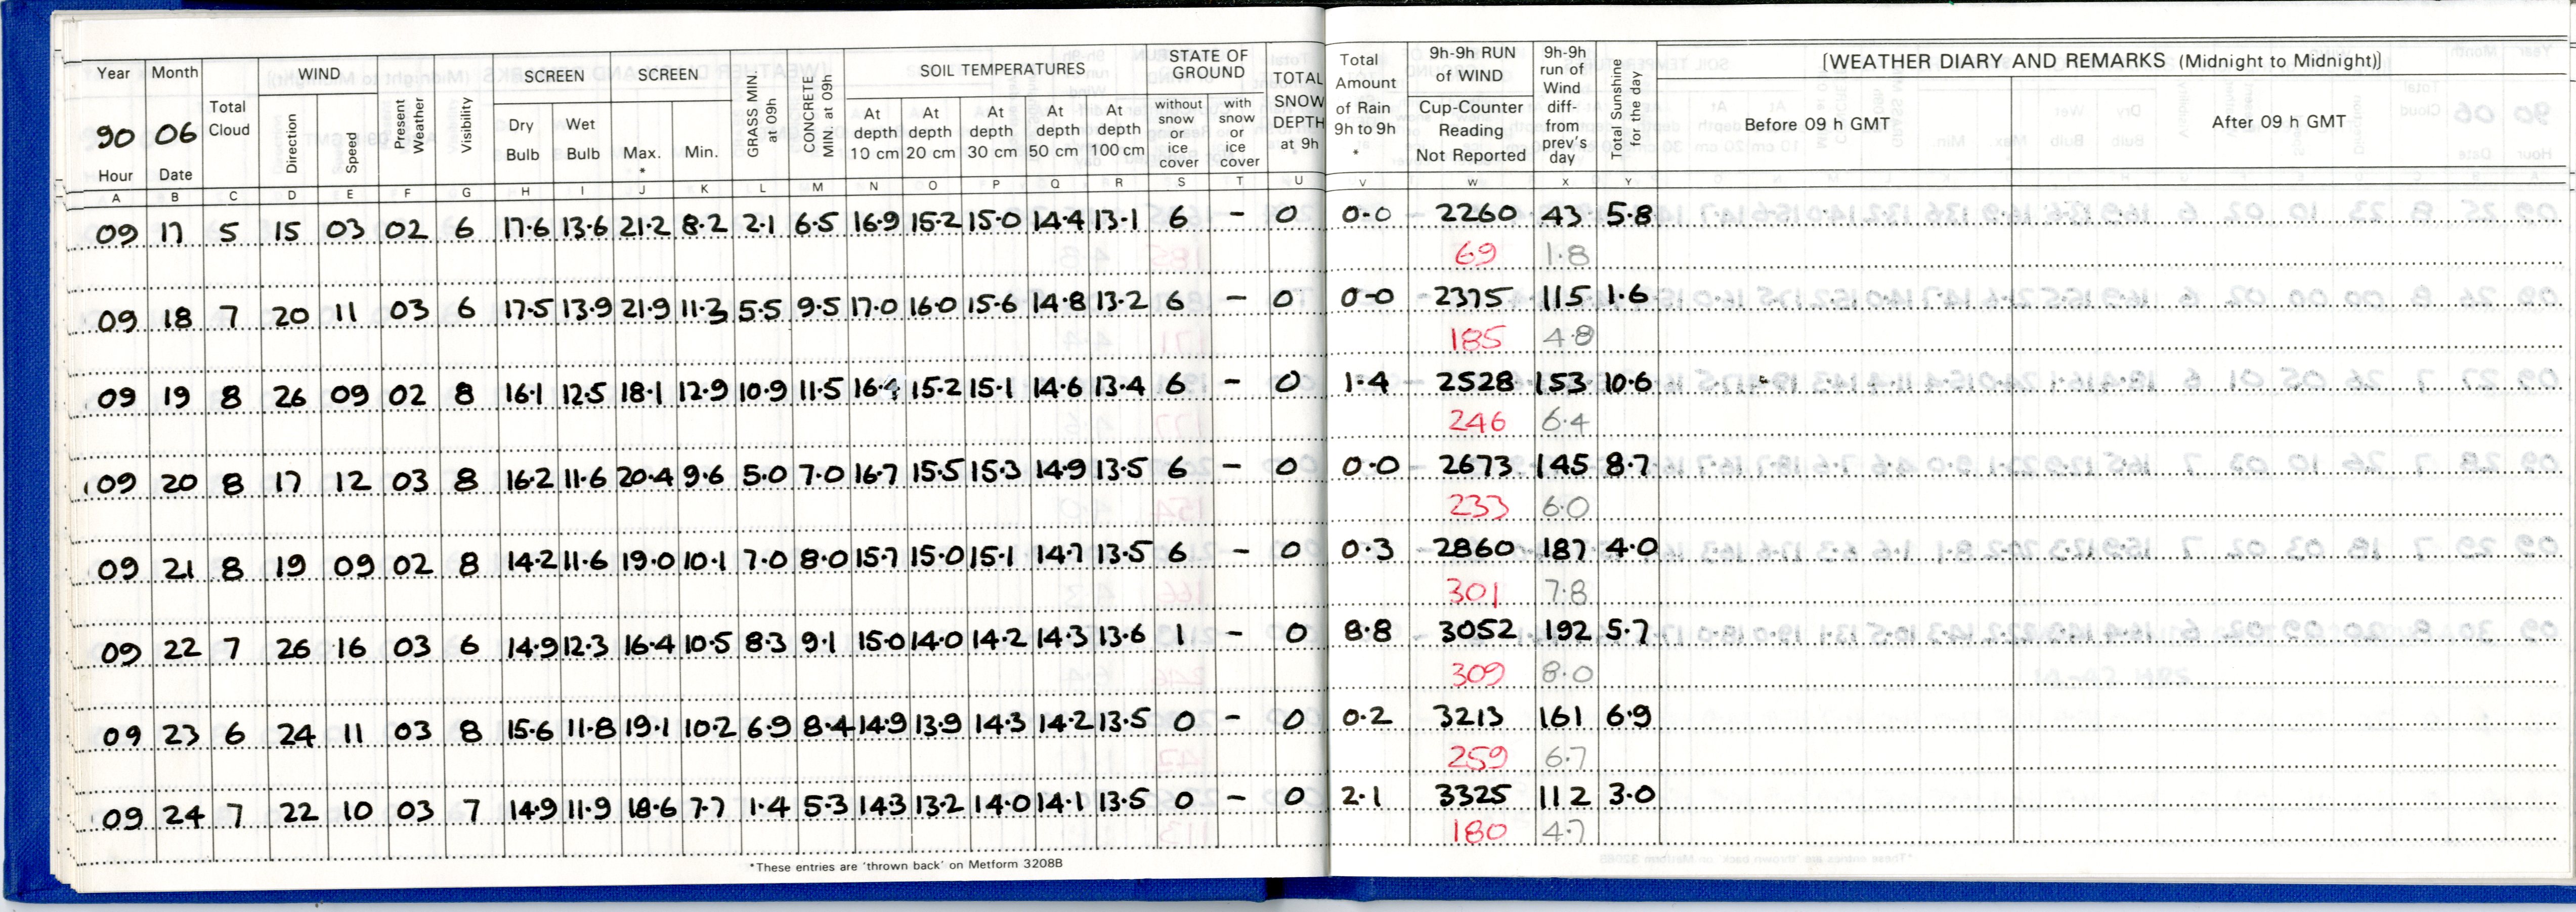 Year Month Total Cloud WIND Direction Speed Present Weather Visibility SCREEN Dry Bulb Wet Bulb SCREEN Max. * Min. GRASS MIN. at 09h CONCRETE MIN. at 09h SOIL TEMPERATURES At depth 10 cm At depth 20 cm At depth 30 cm At depth 50 cm At depth 100 cm STATE OF GROUND without snow or ice cover with snow or ice cover TOTAL SNOW DEPTH at 9h Total Amount of Rain 9h to 9h * 9h-9h RUN of WIND Cup-Counter Reading Not Reported 9h-9h run of Wind diff- from prev's day Total Sunshine for the day [WEATHER DIARY AND REMARKS (Midnight to Midnight)] Before 09 h GMT After 09 h GMT
90 06
Hour Date
A B C D E F G H I J K L M N O P Q R S T U V W X Y
09 17 5 15 03 02 6 17.6 13.6 21.2 8.2 2.1 6.5 16.9 15.2 15.0 14.4 13.1 6 - 0 0.0 2260 43 5.8
69 1.8
09 18 7 20 11 03 6 17.5 13.9 21.9 11.3 5.5 9.5 17.0 16.0 15.6 14.8 13.2 6 - 0 0.0 2375 115 1.6
185 4.8
09 19 8 26 09 02 8 16.1 12.5 18.1 12.9 10.9 11.5 15.2 15.1 14.6 13.4 6 - 0 1.4 2528 153 10.6
246 6.4
09 20 8 17 12 03 8 16.2 11.6 20.4 9.6 5.0 7.0 16.7 15.5 15.3 14.9 13.5 6 - 0 0.0 2673 145 8.7
233 6.0
09 21 8 19 09 02 8 14.2 11.6 19.0 10.1 7.0 8.0 15.7 15.0 15.1 14.7 13.5 6 - 0 0.3 2860 187 4.0
301 7.8
09 22 7 26 16 03 6 14.9 12.3 16.4 10.5 8.3 9.1 15.0 14.0 14.2 14.3 13.6 1 - 0 8.8 3052 192 5.7
309 8.0
09 23 6 24 11 03 8 15.6 11.8 19.1 10.2 6.9 8.4 14.9 13.9 14.3 14.2 13.5 0 - 0 0.2 3213 161 6.9
259 6.7
09 24 7 22 10 03 7 14.9 11.9 18.6 7.7 1.4 5.3 14.3 13.2 14.0 14.1 13.5 0 - 0 2.1 3325 112 3.0
180 4.7
*These entries are 'thrown back' on Metform 3208B